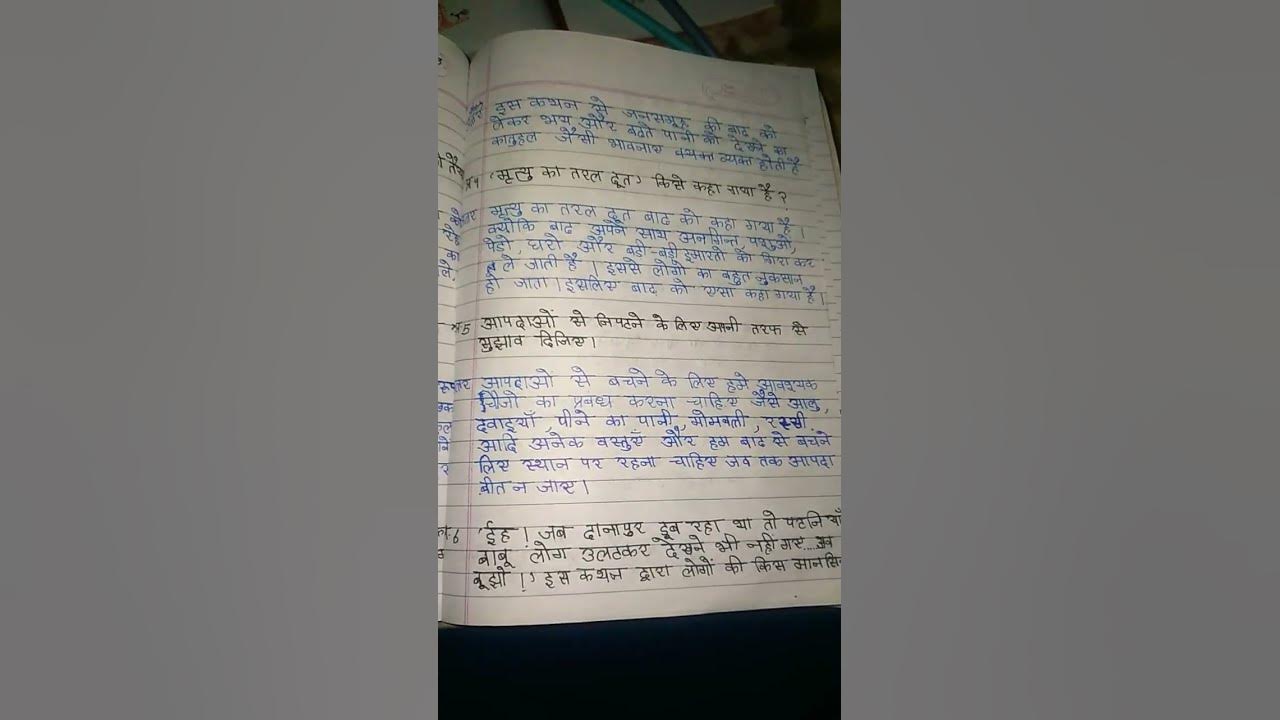 इस कथन से जनसमूह की बाढ को
लेकर भय और बढते पानी को देखने का
कातुहल जैसी भावनाए व्यक्त होती है
प्र4 'मृत्यु का तरल दूत' किसे कहा गया है ?
उत्तर मृत्यु का तरल दूत बाढ को कहा गया है ।
क्योकि बाढ अपने साथ अनगिन्त, पशुओ,
पेडो, घरो और बडी-बड़ी इमारतो को गिरा कर
ले जाती है । इससे लोगो का बहुत नुकसान
हो जाता । इसलिए बाढ को एसा कहा गया है ।
प्र5 आपदाओं से निपटने के लिए अपनी तरफ से
सुझाव दिजिए ।
उत्तर आपदाओं से बचने के लिए हमे आवश्यक
चिजो का प्रबंध करना चाहिए जैसे आलु,
दवाइयाँ, पीने का पानी, मोमबती, रस्सी
आदि अनेक वस्तुएँ और हम बाढ से बचने
लिए स्थान पर रहना चाहिए जब तक आपदा
बीत न जाए ।
6 'ईह ! जब दानापुर डूब रहा था तो पटनियाँ
बाबू लोग उलटकर देखने भी नही गए....अब
बूझो !' इस कथन द्वारा लोगों की किस मानसि